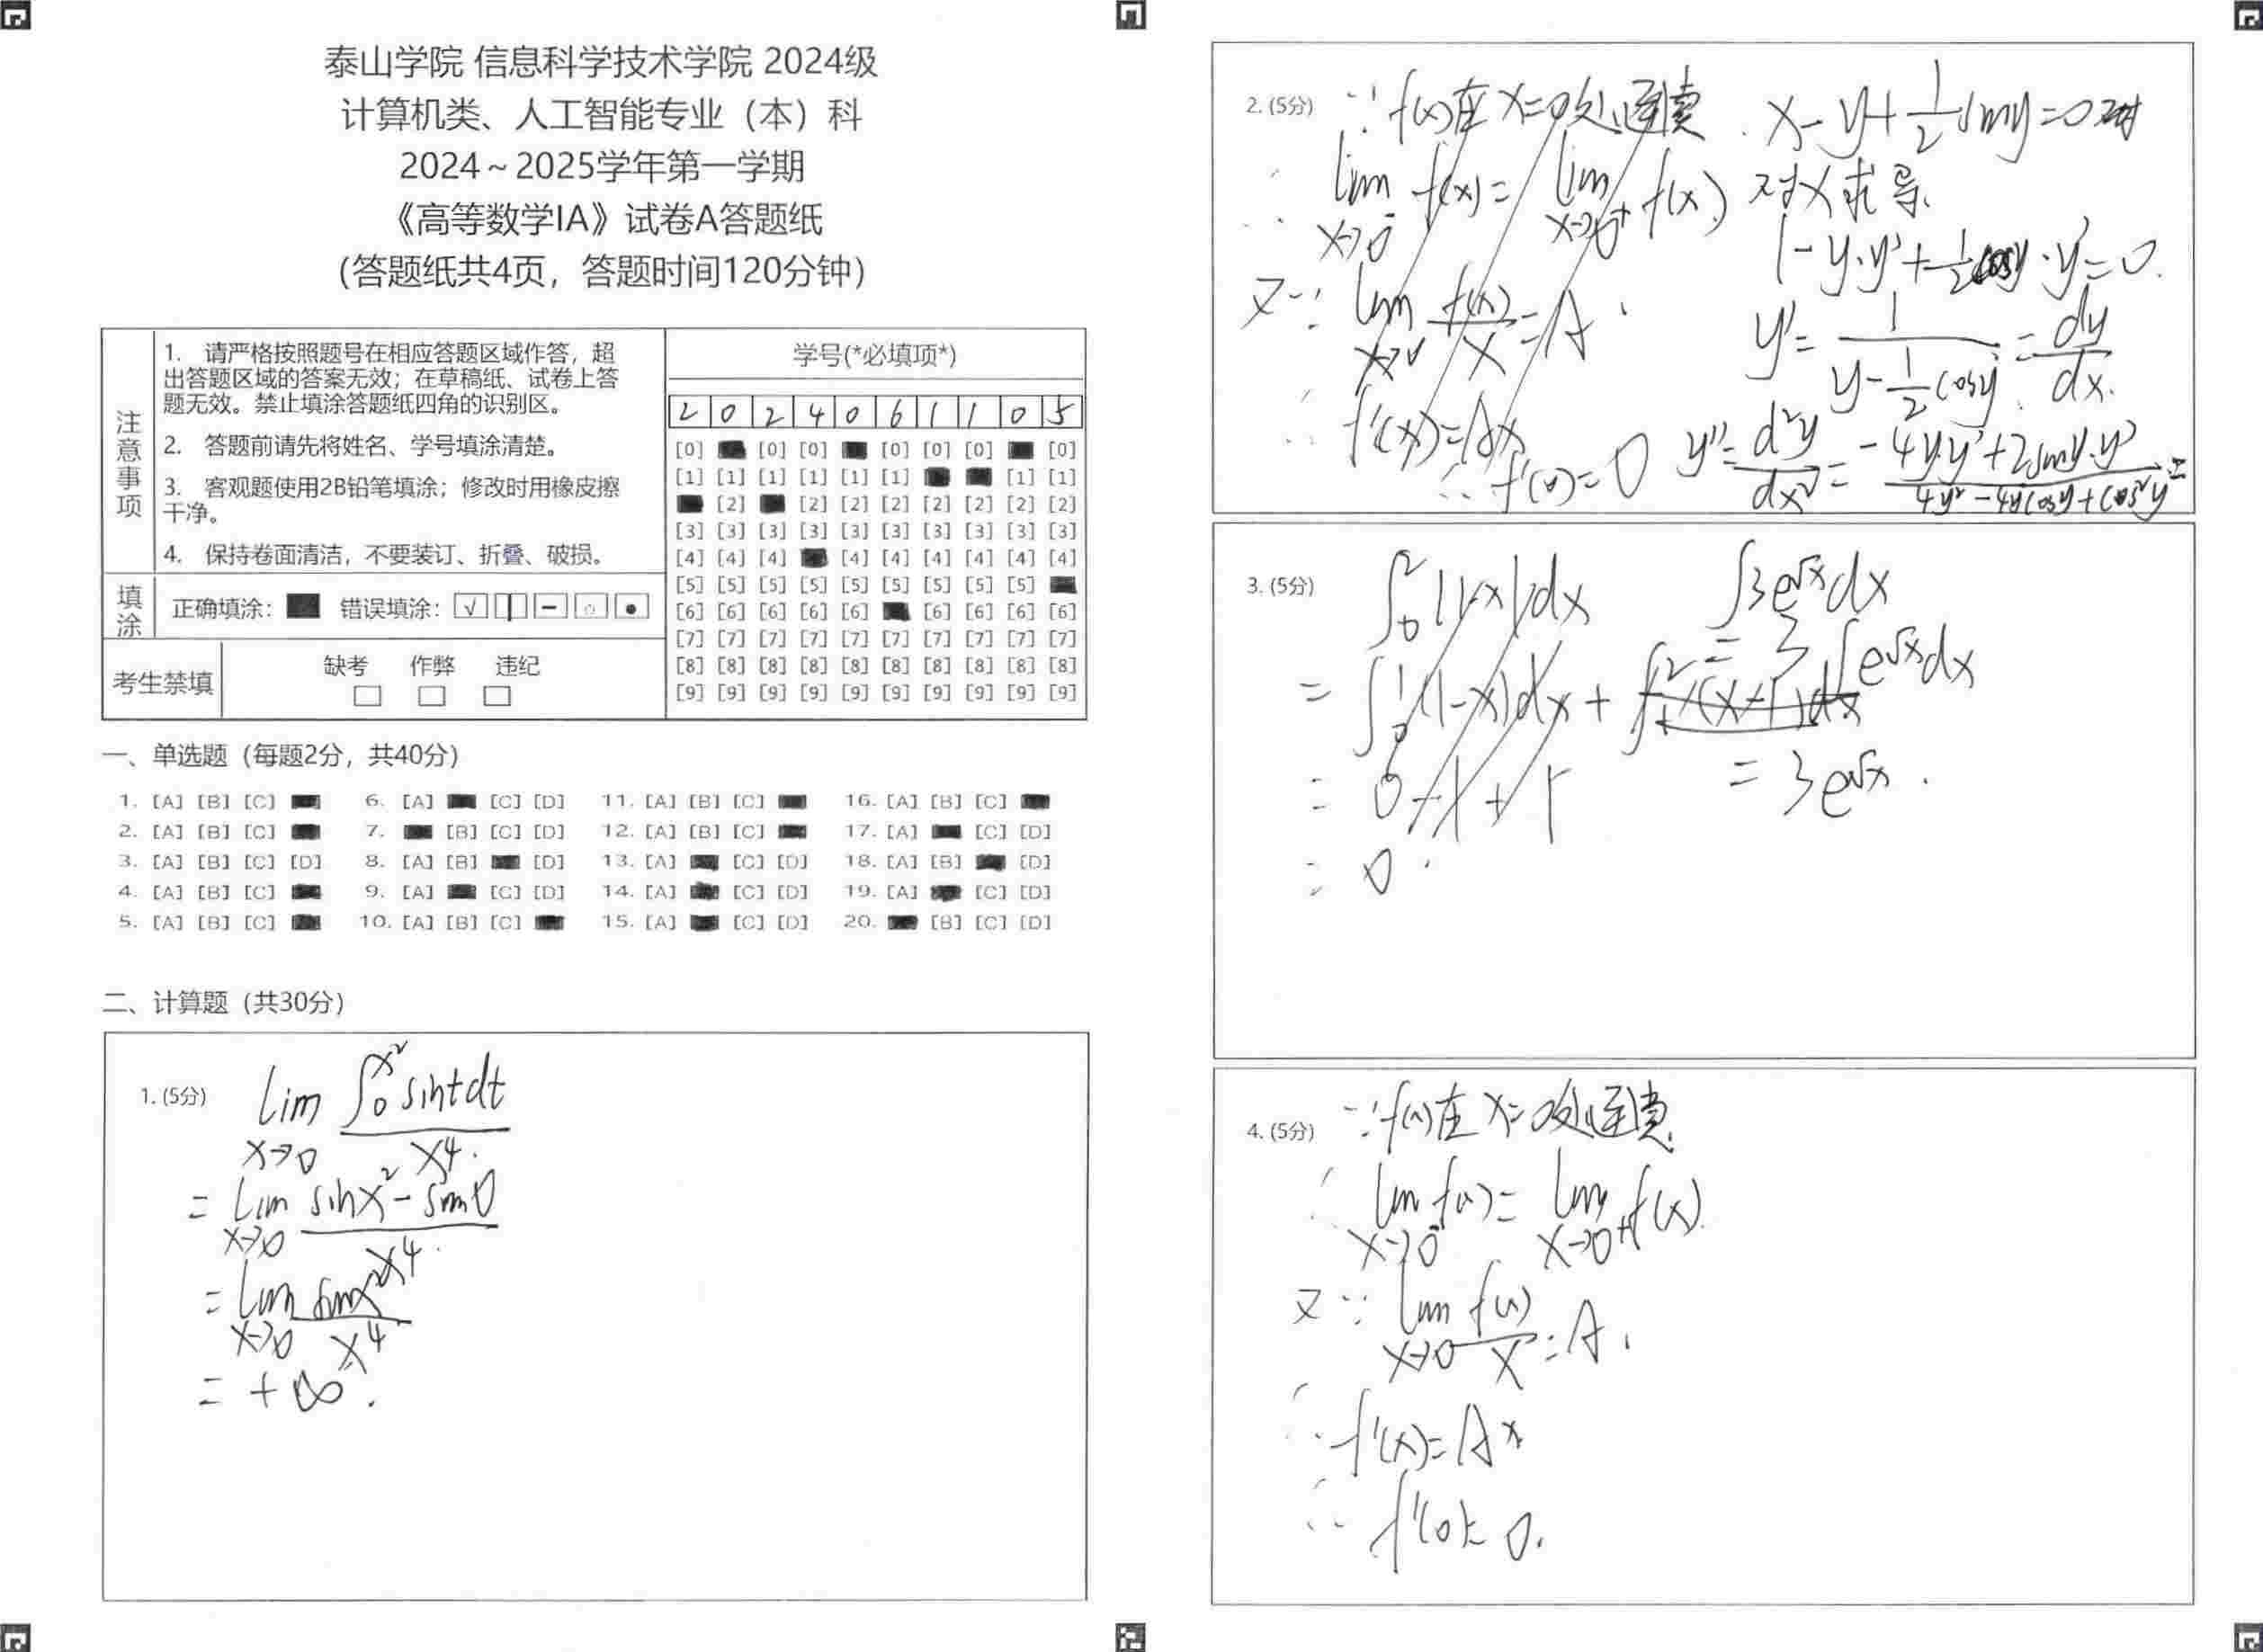 泰山学院 信息科学技术学院 2024级
计算机类、人工智能专业（本）科
2024～2025学年第一学期
《高等数学IA》试卷A答题纸
（答题纸共4页，答题时间120分钟）
注意事项
1. 请严格按照题号在相应答题区域作答，超
出答题区域的答案无效；在草稿纸、试卷上答
题无效。禁止填涂答题纸四角的识别区。
2. 答题前请先将姓名、学号填涂清楚。
3. 客观题使用2B铅笔填涂；修改时用橡皮擦
干净。
4. 保持卷面清洁，不要装订、折叠、破损。
填涂 正确填涂： 错误填涂：
考生禁填 缺考 作弊 违纪
学号(*必填项*)
2 0 2 4 0 6 1 1 0 5
[0] [0] [0] [0] [0] [0] [0]
[1] [1] [1] [1] [1] [1] [1] [1]
[2] [2] [2] [2] [2] [2] [2] [2]
[3] [3] [3] [3] [3] [3] [3] [3] [3] [3]
[4] [4] [4] [4] [4] [4] [4] [4] [4]
[5] [5] [5] [5] [5] [5] [5] [5] [5]
[6] [6] [6] [6] [6] [6] [6] [6] [6]
[7] [7] [7] [7] [7] [7] [7] [7] [7] [7]
[8] [8] [8] [8] [8] [8] [8] [8] [8] [8]
[9] [9] [9] [9] [9] [9] [9] [9] [9] [9]
一、单选题（每题2分，共40分）
1. [A] [B] [C] 6. [A] [C] [D] 11. [A] [B] [C] 16. [A] [B] [C]
2. [A] [B] [C] 7. [B] [C] [D] 12. [A] [B] [C] 17. [A] [C] [D]
3. [A] [B] [C] [D] 8. [A] [B] [D] 13. [A] [C] [D] 18. [A] [B] [D]
4. [A] [B] [C] 9. [A] [C] [D] 14. [A] [C] [D] 19. [A] [C] [D]
5. [A] [B] [C] 10. [A] [B] [C] 15. [A] [C] [D] 20. [B] [C] [D]
二、计算题（共30分）
1. (5分) lim x→0 ∫₀^x² sintdt / x⁴.
= lim x→0 (sinx² - sin0) / x⁴.
= lim x→0 sinx² x⁴ / x⁴
= +∞.
2. (5分) ∵ f(x)在x=0处连续
∴ lim x→0⁻ f(x) = lim x→0⁺ f(x)
又∵ lim x→0 f(x)/x = A
∴ f'(x)=Ax
∴ f'(0)=0
x-y+1/2 siny=0
对x求导
1-y·y'+1/2 cosy·y'=0.
y'= 1/(y-1/2 cosy) = dy/dx.
y''= d²y/dx² = (-4y·y'+2siny·y')/(4y²-4ycosy+cos²y)
3. (5分) ∫₀² |1-x|dx
= ∫₀¹ (1-x)dx + ∫₁² (x-1)dx
= 0-1+1
= 0.
∫3e^√x dx
= 3∫e^√x dx
= 3e^√x.
4. (5分) ∵ f(x)在x=0处连续
∴ lim x→0⁻ f(x) = lim x→0⁺ f(x)
又∵ lim x→0 f(x)/x = A.
∴ f'(x)=Ax
∴ f'(0)=0.